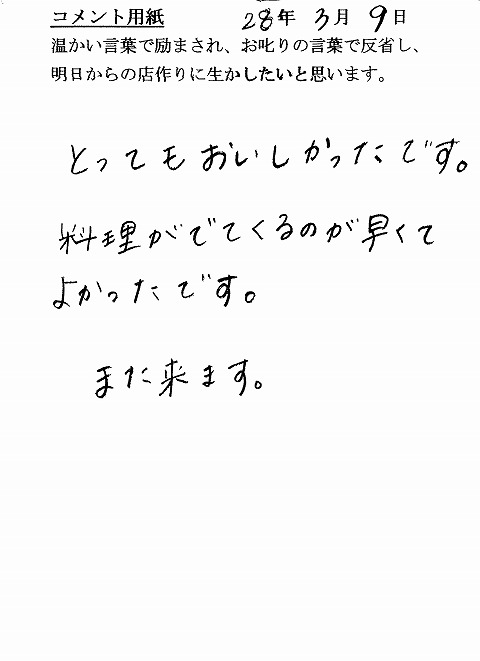 コメント用紙 28年 3月 9日
温かい言葉で励まされ、お叱りの言葉で反省し、
明日からの店作りに生かしたいと思います。
とってもおいしかったです。
料理がでてくるのが早くて
よかったです。
また来ます。